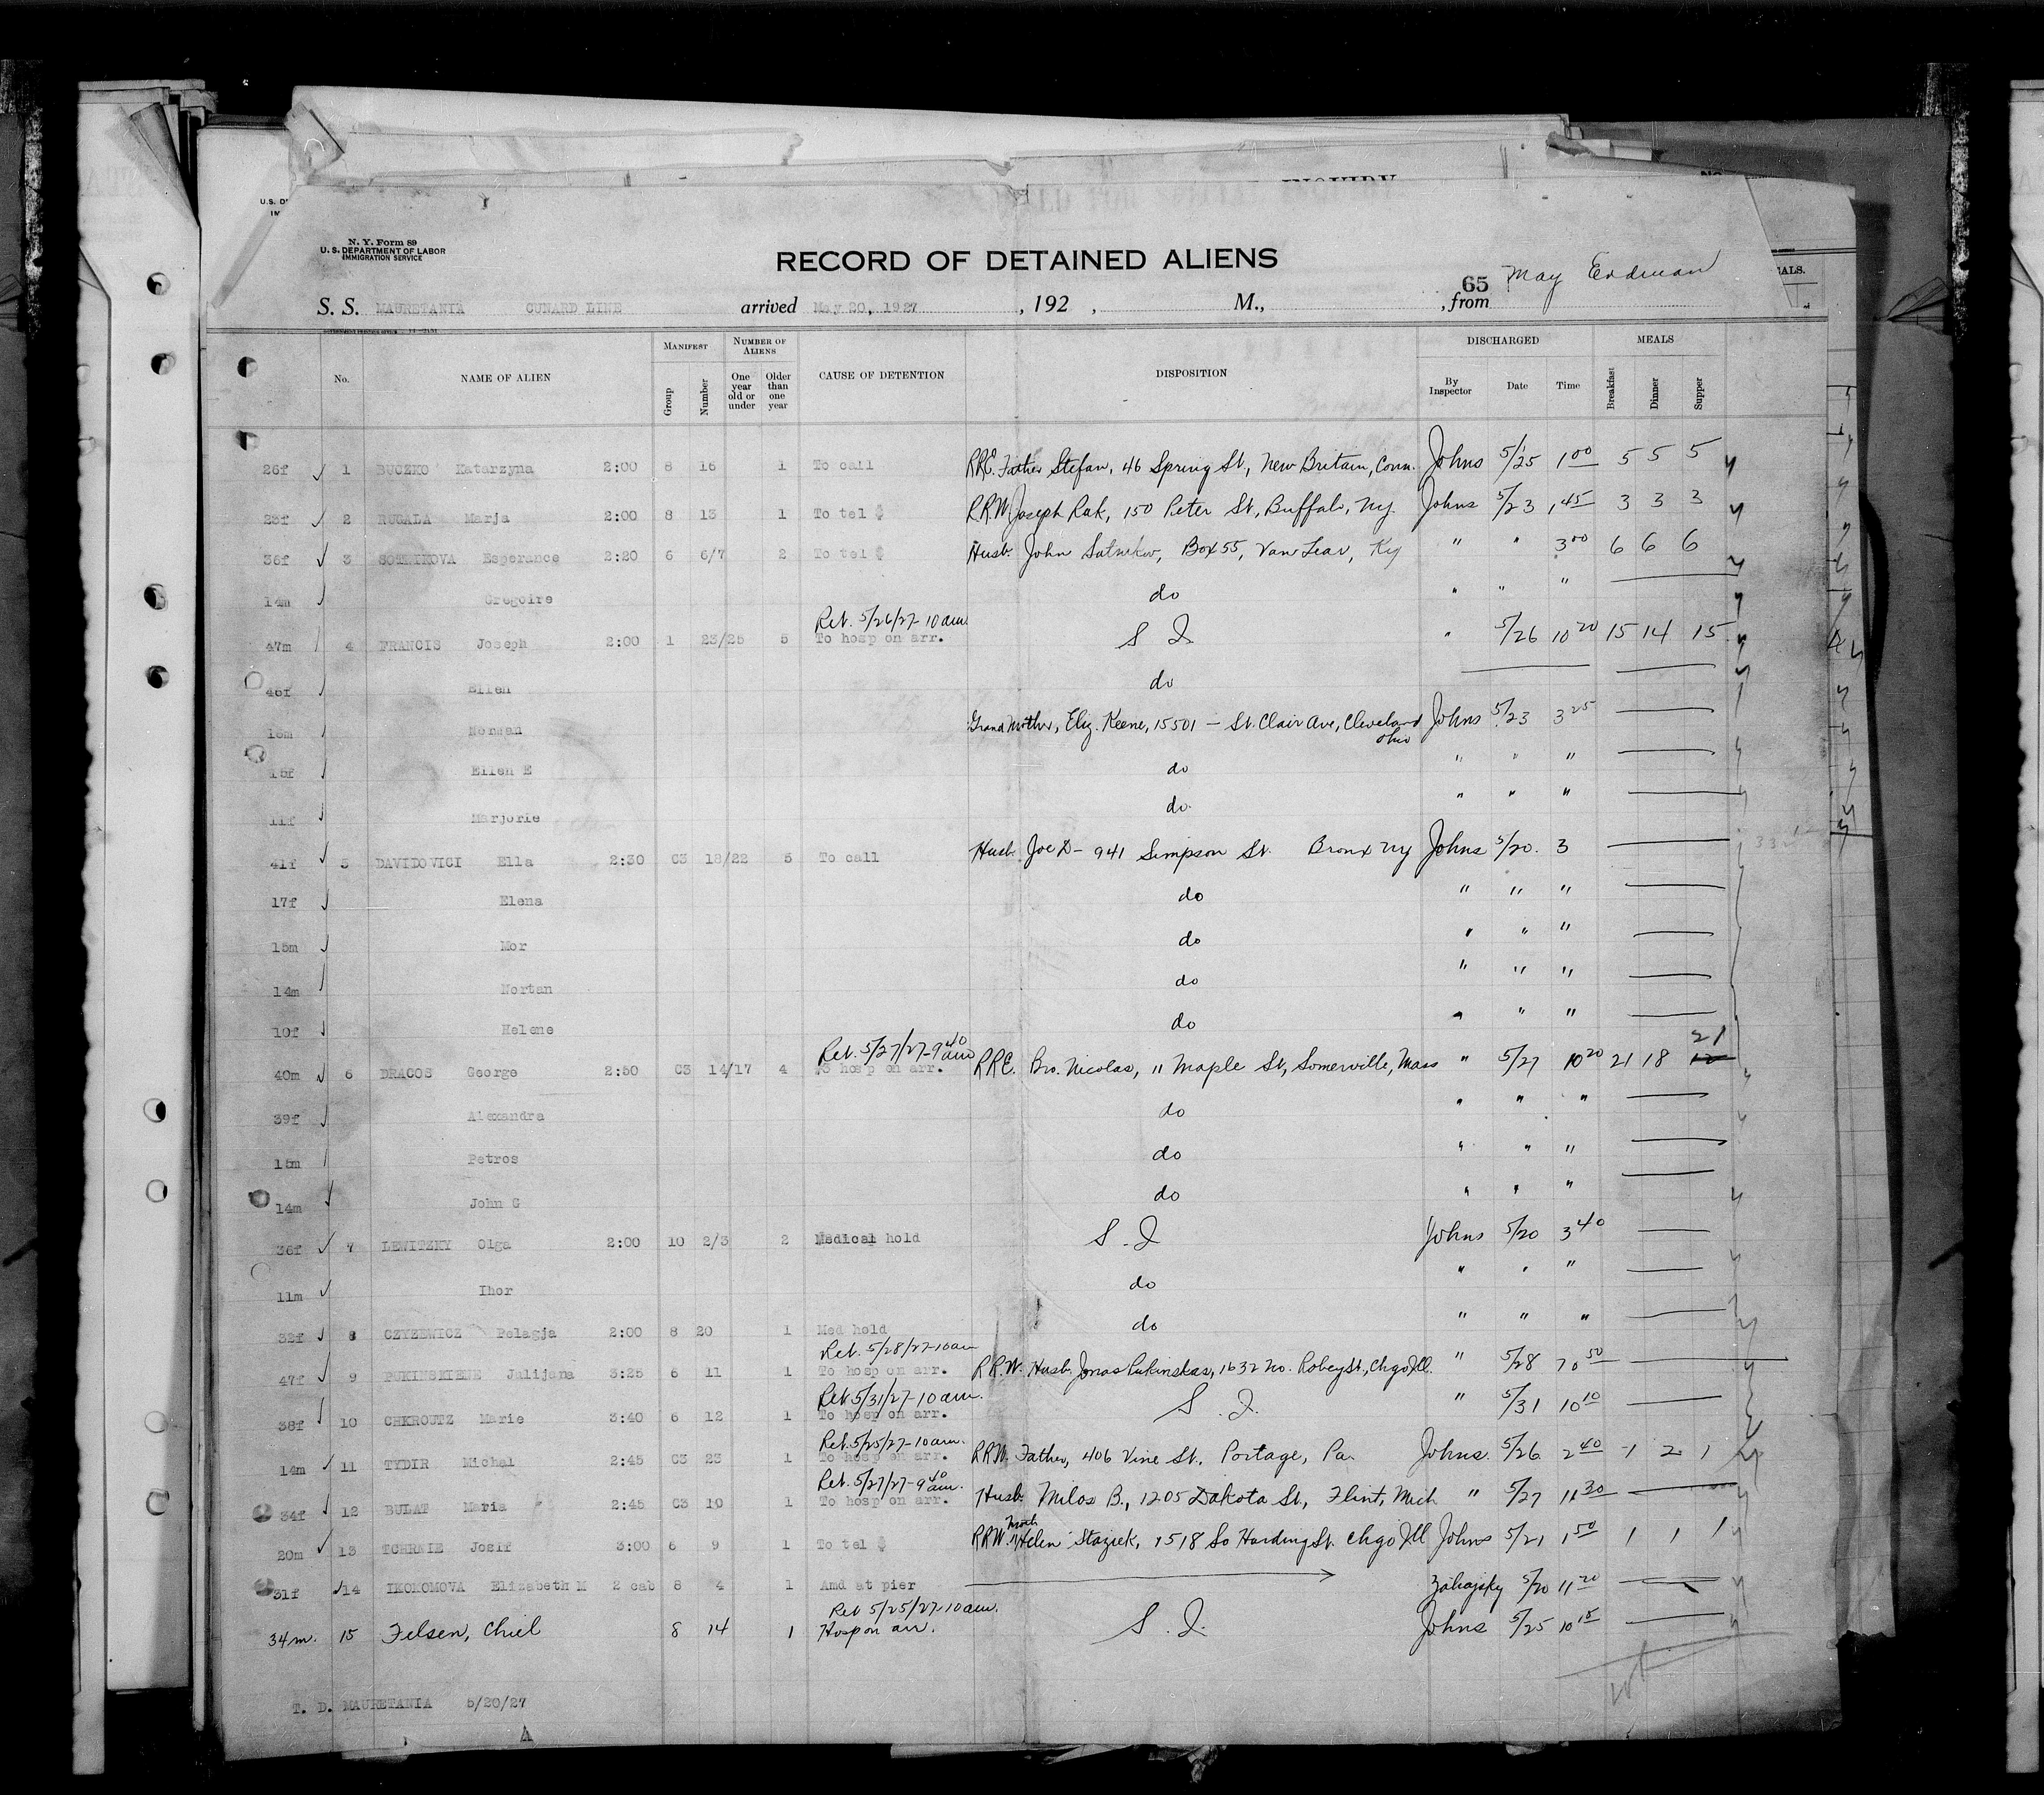 U.S. D
IN
INQUIRY
N. Y. Form 89
U. S. DEPARTMENT OF LABOR
IMMIGRATION SERVICE
RECORD OF DETAINED ALIENS
65 May Erdman
ALS.
S. S. MAURETANIA CUNARD LINE arrived May 20, 1927, 192 , M., , from
No. NAME OF ALIEN MANIFEST Group Number NUMBER OF ALIENS One year old or under Older than one year CAUSE OF DETENTION DISPOSITION DISCHARGED By Inspector Date Time MEALS Breakfast Dinner Supper
26f 1 BUCZKO Katarzyna 2:00 8 16 1 To call RRE. Father Stefan, 46 Spring St., New Britain, Conn. Johns 5/25 1 00 5 5 5
23f 2 RUGALA Marja 2:00 8 13 1 To tel $ R.R.W. Joseph Rak, 150 Peter St, Buffalo, NY. Johns 5/23 1 45 3 3 3
36f 3 SOTNIKOVA Esperance 2:20 6 6/7 2 To tel $ Husb. John Sotnikov, Box 55, Van Lear, Ky " " 3 00 6 6 6
14m Gregoire do " " "
Ret. 5/26/27-10 am
47m 4 FRANCIS Joseph 2:00 1 23/25 5 To hosp on arr. S I " 5/26 10 20 15 14 15
46f Ellen do
16m Norman Grand Mother, Eliz. Keene, 15501 - St. Clair Ave, Cleveland Ohio Johns 5/23 3 25
15f Ellen E do " " "
11f Marjorie do. " " "
41f 5 DAVIDOVICI Ella 2:30 C3 18/22 5 To call Husb. Joe D- 941 Simpson St. Bronx NY Johns 5/20. 3
17f Elena do " " "
15m Mor do " " "
14m Nortan do " " "
10f Helene do " " "
Ret. 5/27/27-9 40 am 21
40m 6 DRACOS George 2:50 C3 14/17 4 To hosp on arr. RRE. Bro. Nicolas, 11 Maple St, Somerville, Mass " 5/27 10 20 21 18 12
39f Alexandra do " " "
15m Petros do " " "
14m John G do " " "
36f 7 LEWITZKY Olga 2:00 10 2/3 2 Medical hold S. I Johns 5/20 3 40
11m Ihor do " " "
32f 8 CZYZEWICZ Pelagja 2:00 8 20 1 Med hold do " " "
Ret. 5/28/27-10 am
47f 9 PUKINSKIENE Julijana 3:25 6 11 1 To hosp on arr. R.R.W. Husb. Jonas Pukinskas, 1632 No. Robey St., Chgo Ill. " 5/28 10 50
Ret 5/31/27-10 am.
38f 10 CHKROUTZ Marie 3:40 6 12 1 To hosp on arr. S. I. " 5/31 10 10
Ret. 5/25/27-10 am.
14m 11 TYDIR Michal 2:45 C3 23 1 To hosp on arr. RRW. Father, 406 Vine St, Portage, Pa. Johns. 5/26 2 40 1 2 1
Ret. 5/27/27-9 40 am.
34f 12 BULAT Maria 2:45 C3 10 1 To hosp on arr. Husb. Milos B., 1205 Dakota St, Flint, Mich " 5/27 11 30
20m 13 TCHRNIE Josif 3:00 6 9 1 To tel $ RRW. Moth Helen Staziek, 1518 So Harding St. Chgo Ill Johns 5/21 1 50 1 1 1
31f 14 IKONOMOVA Elizabeth M 2 cab 8 4 1 Amd at pier 5/20 11 20
Ret 5/25/27-10 am.
34m. 15 Felsen, Chiel 8 14 1 Hosp on arr. S. I. Johns 5/25 10 15
T. D. MAURETANIA 5/20/27